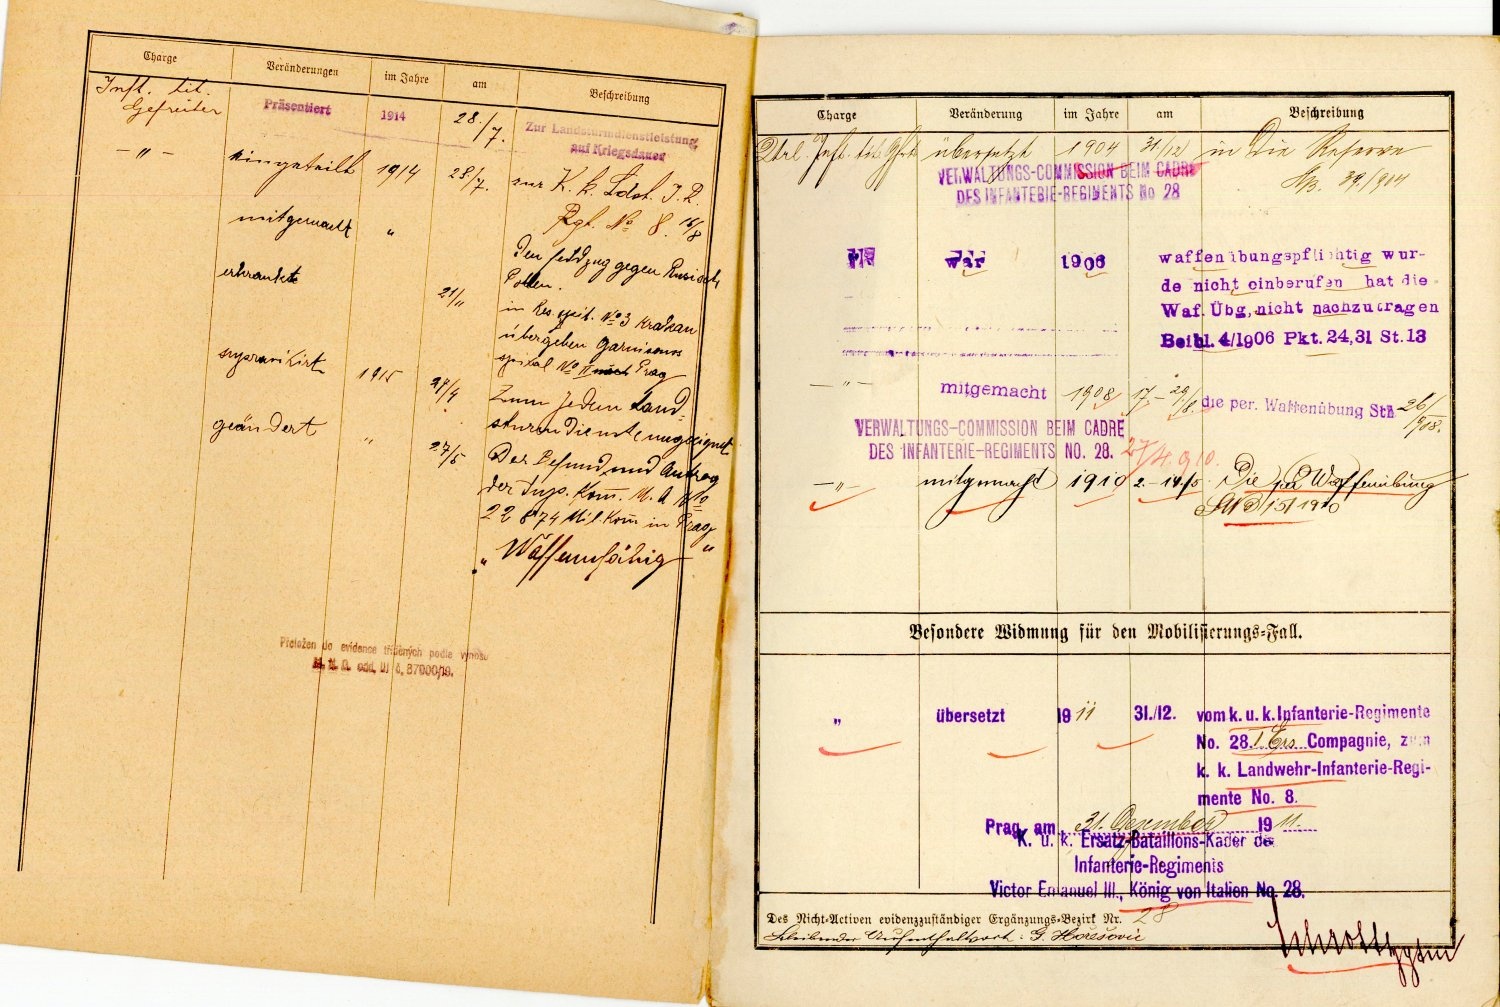 Charge Veränderungen im Jahre am Beschreibung
Inft. tit.
Gefreiter Präsentiert 1914 28./7. Zur Landsturmdienstleistung
auf Kriegsdauer
— " — eingeteilt 1914 28./7. zur K. k. Ldst. I. R.
Rgt. No 8. 16/8
mitgemacht " den Feldzug gegen Russisch
Polen.
erkrankt 21/11 in Res. spit. No 3 Krakau
übergeben Garnisons
spital No II Prag
superarbitrirt 1915 27/4 Zum jeden Land-
sturm Dienste ungeeignet
geändert " 27/5 Der Befund und Antrag
der Sup. Kom. M. A. No
22874 Mil. Kom in Prag
" Waffenunfähig "
Přeložen do evidence tříděných podle výnosu
M. N. O. odd. VI č. 87000/19.
Charge Veränderung im Jahre am Beschreibung
Inft. tit. Gfrt übersetzt 1904 31/12 in die Reserve
39/904
VERWALTUNGS-COMMISSION BEIM CADRE
DES INFANTERIE-REGIMENTS No 28
war 1906 waffenübungspflichtig wur-
de nicht einberufen hat die
Waf. Übg, nicht nachzutragen
Beibl. 4/1906 Pkt. 24,31 St. 13
— " — mitgemacht 1908 17.- 29/8. die per. Waffenübung StB 26/1908.
VERWALTUNGS-COMMISSION BEIM CADRE
DES INFANTERIE-REGIMENTS NO. 28. 27/4 910.
— " — mitgemacht 1910 2.- 14/5 Die Waffenübung
15/1910
Besondere Widmung für den Mobilisierungs-Fall.
" übersetzt 1911 31./12. vom k. u. k. Infanterie-Regimente
No. 28. 1. Ers. Compagnie, zum
k. k. Landwehr-Infanterie-Regi-
mente No. 8.
Prag, am 31. Dezember 1911.
K. u. k. Ersatz-Bataillons-Kader des
Infanterie-Regiments
Victor Emanuel III., König von Italien No. 28.
Des Nicht-Activen evidenzzuständiger Ergänzungs-Bezirk Nr. 28
bleibender Aufenthaltsort: G. Horešovic